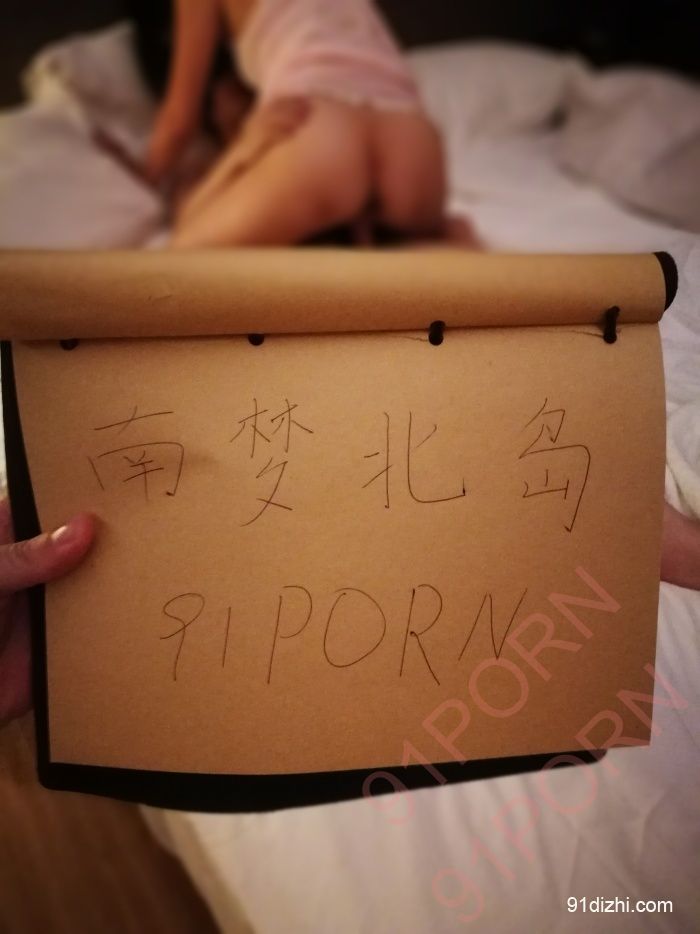 南梦北岛
91PORN
91PORN
91PORN
91dizhi.com